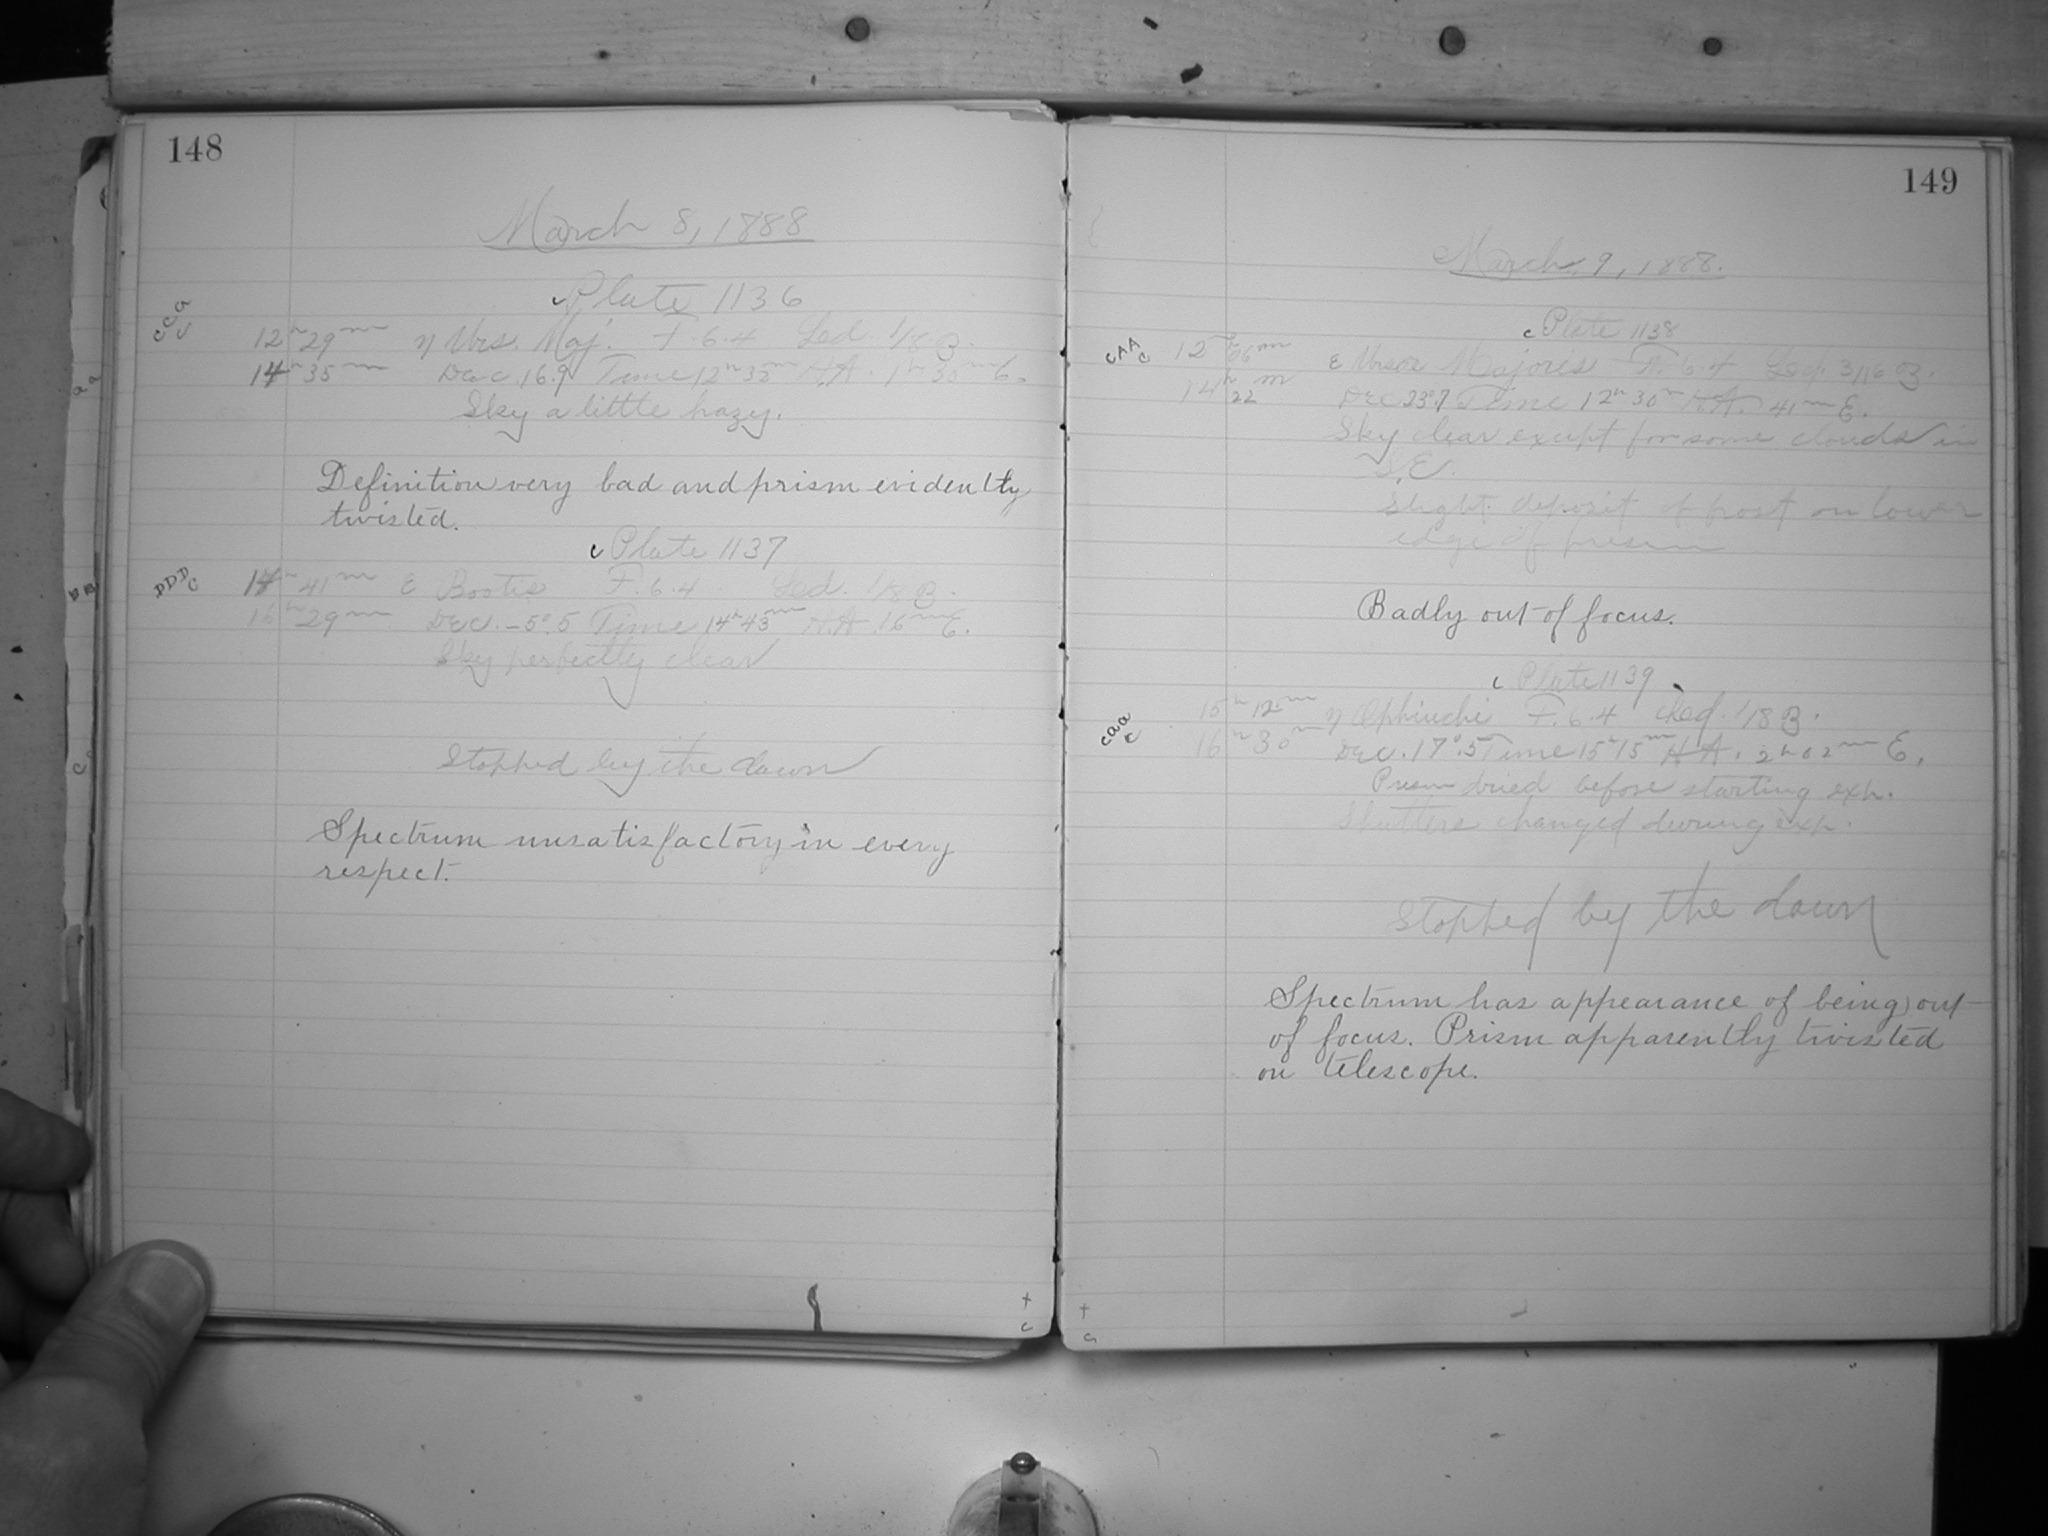 148
March 8, 1888
c Plate 1136
c c a c
12h 29m η Urs. Maj. F. 6.4 Sed. 1/8 B.
14h 35m Dec. 16.9 Time 12h 35m H.A. 1h 30m E.
Sky a little hazy.
Definition very bad and prism evidently
twisted.
c Plate 1137
DDD c
14h 41m ε Bootis F. 6.4 Sed. 1/8 B.
16h 29m Dec. -5°.5 Time 14h 43m H.A. 16m E.
Sky perfectly clear
Stopped by the dawn
Spectrum unsatisfactory in every
respect.
149
March 9, 1888.
c Plate 1138
CAA c
12h 06m ε Ursae Majoris F. 6.4 Sed. 3/16 B.
14h 22m Dec 23°.7 Time 12h 30m H.A. 41m E.
Sky clear except for some clouds in
S.E.
Slight deposit of frost on lower
edge of prism
Badly out of focus.
c Plate 1139
caa c
15h 12m η Ophiuchi F. 6.4 Sed. 1/8 B.
16h 30m Dec. 17°.5 Time 15h 15m H.A. 2h 02m E.
Prism dried before starting exp.
Shutters changed during exp.
Stopped by the dawn
Spectrum has appearance of being out
of focus. Prism apparently twisted
on telescope.